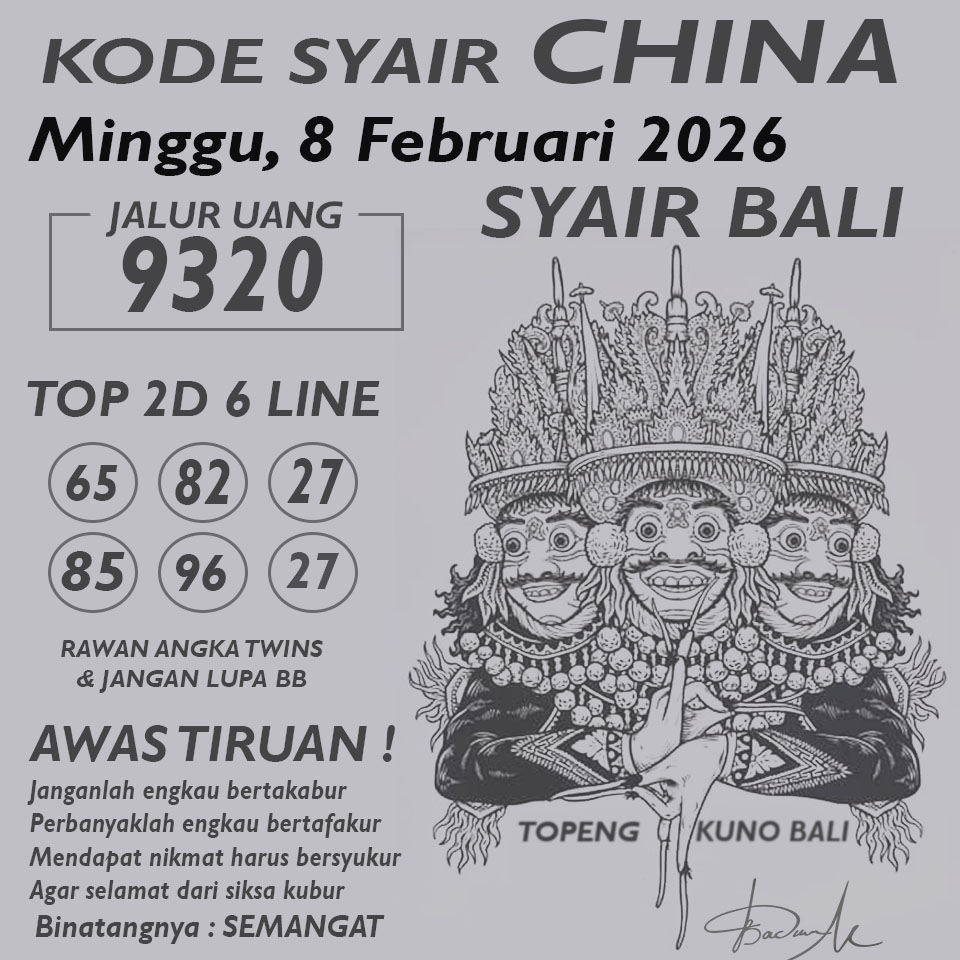 KODE SYAIR CHINA
Minggu, 8 Februari 2026
SYAIR BALI
JALUR UANG
9320
TOP 2D 6 LINE
65 82 27
85 96 27
RAWAN ANGKA TWINS
& JANGAN LUPA BB
AWAS TIRUAN !
Janganlah engkau bertakabur
Perbanyaklah engkau bertafakur
Mendapat nikmat harus bersyukur
Agar selamat dari siksa kubur
Binatangnya : SEMANGAT
TOPENG KUNO BALI